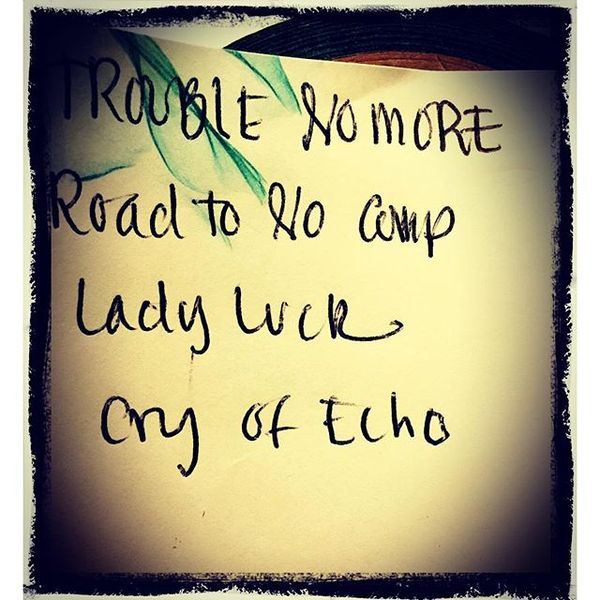 TROUBLE NO MORE
Road to No Comp
Lady Luck
Cry of Echo